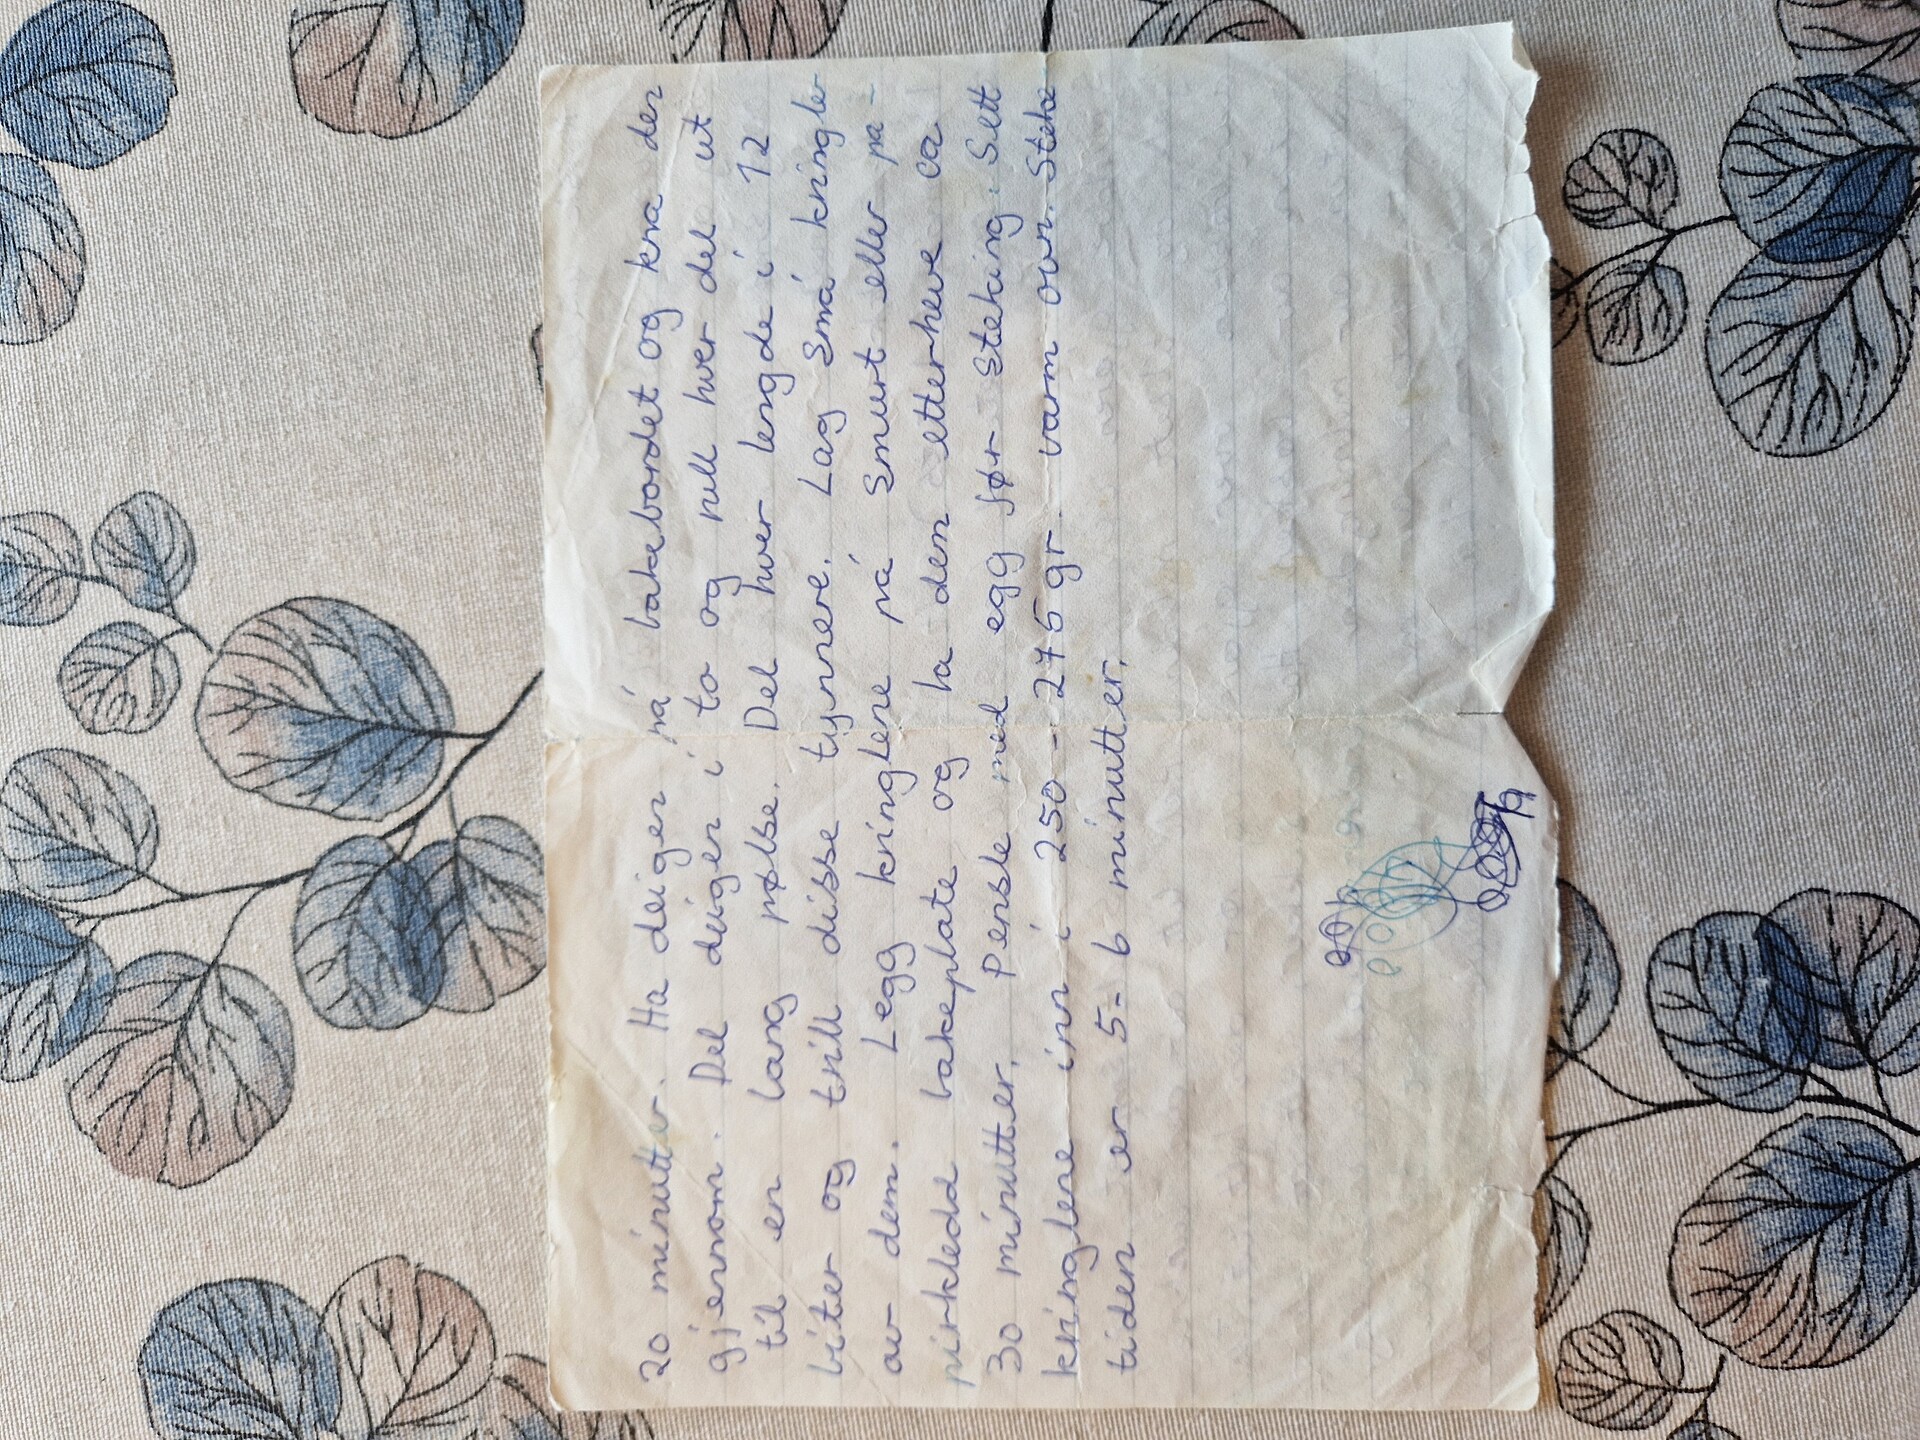 20 minutter. Ha deigen på bakebordet og kna den
gjennom. Del deigen i to og rull hver del ut
til en lang pølse. Del hver lengde i 12
biter og trill disse tynnere. Lag små kringler
av dem. Legg kringlene på smurt eller pa-
pirkledd bakeplate og la dem etterheve ca
30 minutter. Pensle med egg før steking. Sett
kringlene inn i 250 - 275 gr. varm ovn. Steke
tiden er 5-6 minutter.